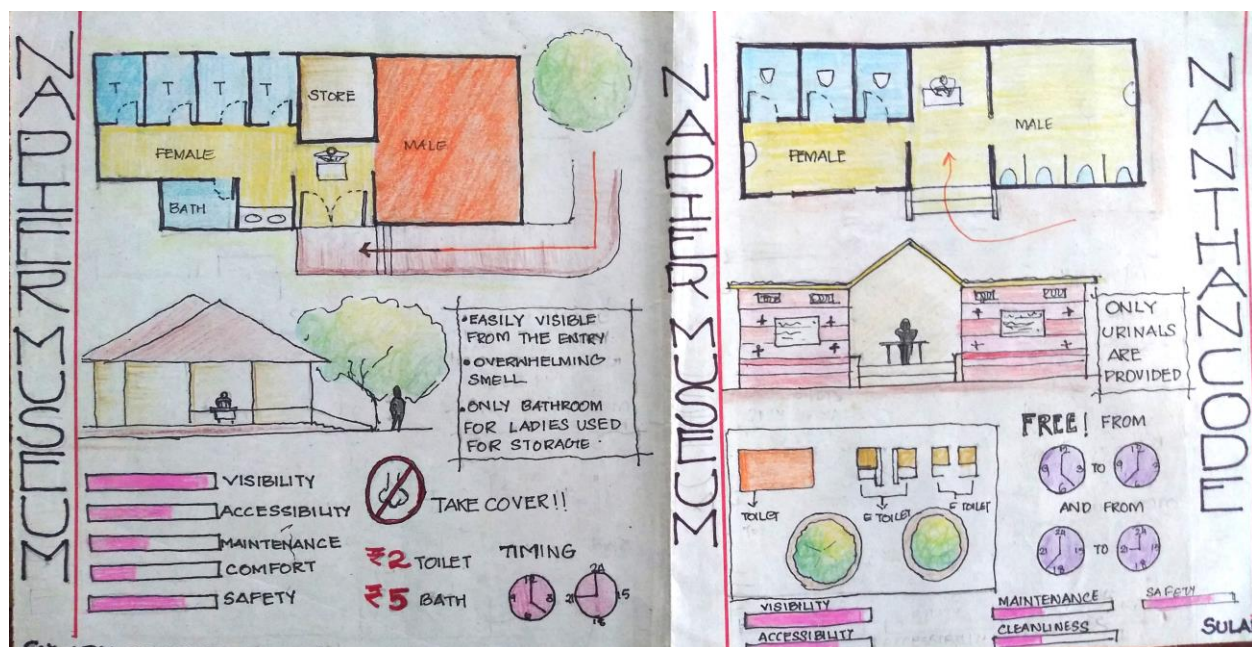 NAPIER MUSEUM
T T T T
STORE
FEMALE
MALE
BATH
• EASILY VISIBLE
FROM THE ENTRY
• OVERWHELMING
SMELL.
• ONLY BATHROOM
FOR LADIES USED
FOR STORAGE.
VISIBILITY
ACCESSIBILITY
MAINTENANCE
COMFORT
SAFETY
TAKE COVER!!
₹2 TOILET
₹5 BATH
TIMING
12
9 3
6
24
21 15
18
NAPIER MUSEUM
MALE
FEMALE
ONLY
URINALS
ARE
PROVIDED
TOILET
E TOILET
E TOILET
FREE! FROM
12
9 3 TO
6
AND FROM
24
21 15 TO
18
24
21 15
18
VISIBILITY
ACCESSIBILITY
MAINTENANCE
CLEANLINESS
SAFETY
NANTHANCODE